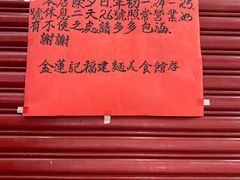 本店除夕日年初一.24-25.
號休息二天26號照常營業.如
有不便之處請多多包涵.
謝謝
金蓮記福建麵美食館啓